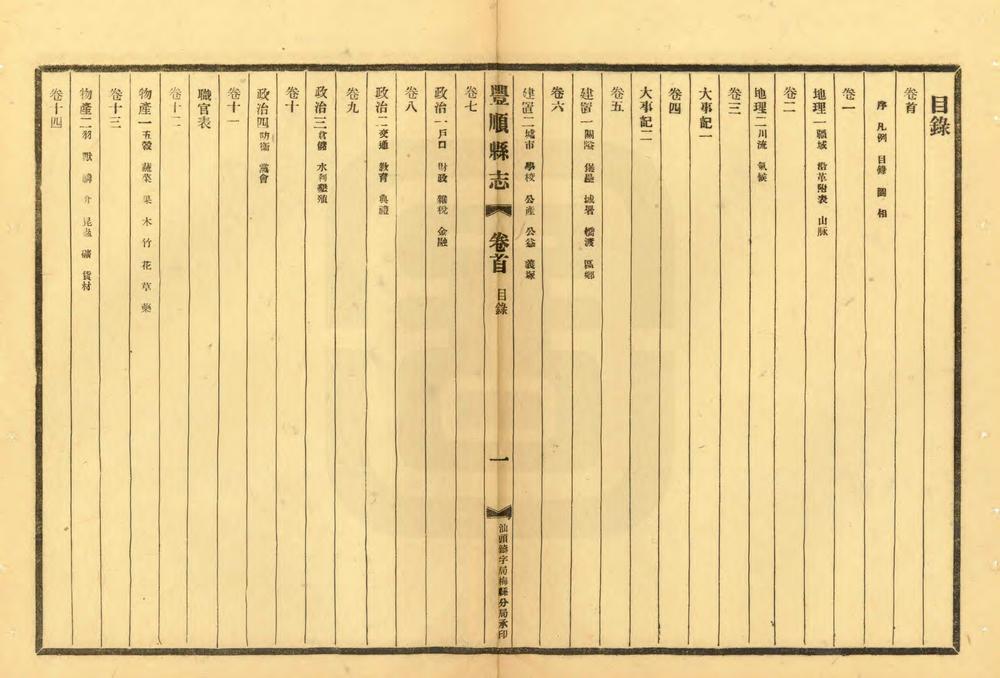 目錄
卷首
序 凡例 目錄 圖 相
卷一
地理一疆域 沿革附表 山脉
卷二
地理二川流 氣候
卷三
大事記一
卷四
大事記二
卷五
建置一關隘 堡壘 城署 橋渡 區鄉
卷六
建置二城市 學校 公產 公益 義塚
豐順縣志 卷首 目錄 一 汕頭鑄字局梅縣分局承印
卷七
政治一戶口 財政 雜稅 金融
卷八
政治二交通 敎育 典禮
卷九
政治三倉儲 水利墾殖
卷十
政治四防衛 黨會
卷十一
職官表
卷十二
物產一五穀 蔬菜 果 木 竹 花 草 藥
卷十三
物產二羽 獸 鱗 介 昆蟲 礦 貨材
卷十四